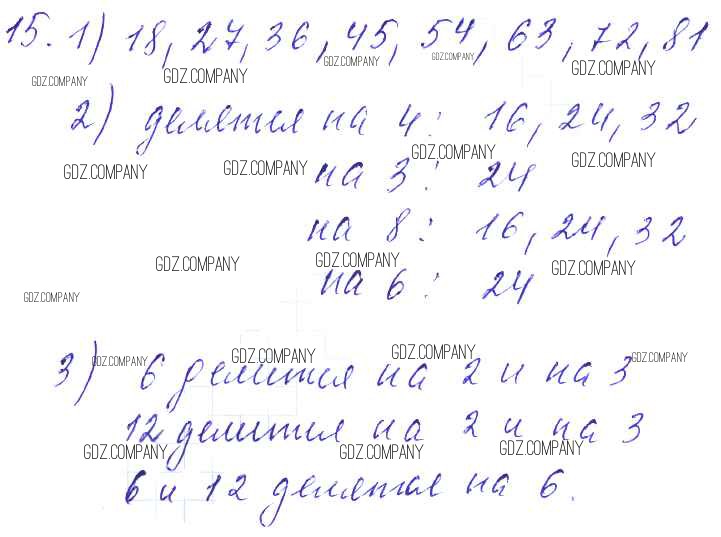 15. 1) 18, 27, 36, 45, 54, 63, 72, 81
GDZ.COMPANY GDZ.COMPANY GDZ.COMPANY GDZ.COMPANY GDZ.COMPANY
2) делятся на 4: 16, 24, 32
GDZ.COMPANY GDZ.COMPANY GDZ.COMPANY GDZ.COMPANY
на 3: 24
на 8: 16, 24, 32
GDZ.COMPANY GDZ.COMPANY GDZ.COMPANY
на 6: 24
GDZ.COMPANY
GDZ.COMPANY GDZ.COMPANY GDZ.COMPANY GDZ.COMPANY
3) 6 делится на 2 и на 3
12 делится на 2 и на 3
GDZ.COMPANY GDZ.COMPANY GDZ.COMPANY
6 и 12 делятся на 6.